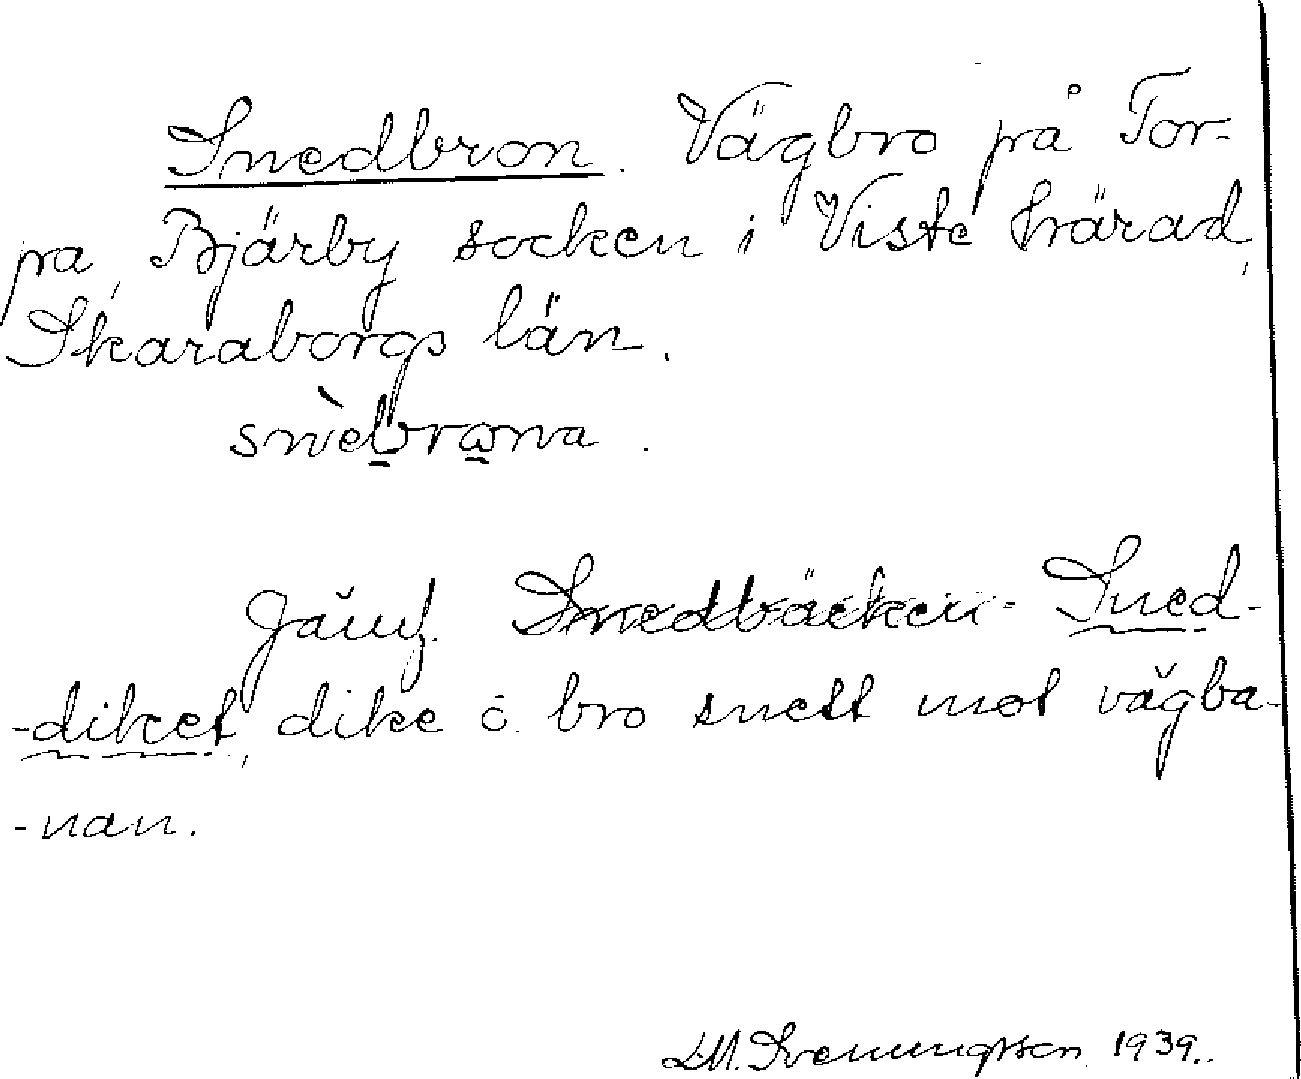 Snedbron. Vägbro på Tor-
pa, Bjärby socken i Viste härad,
Skaraborgs län.
snèbrona.
Jämf. Snedbäcken - Sned-
-diket, dike o. bro snett mot vägba-
-nan.
D.M. Svenningsson 1939.